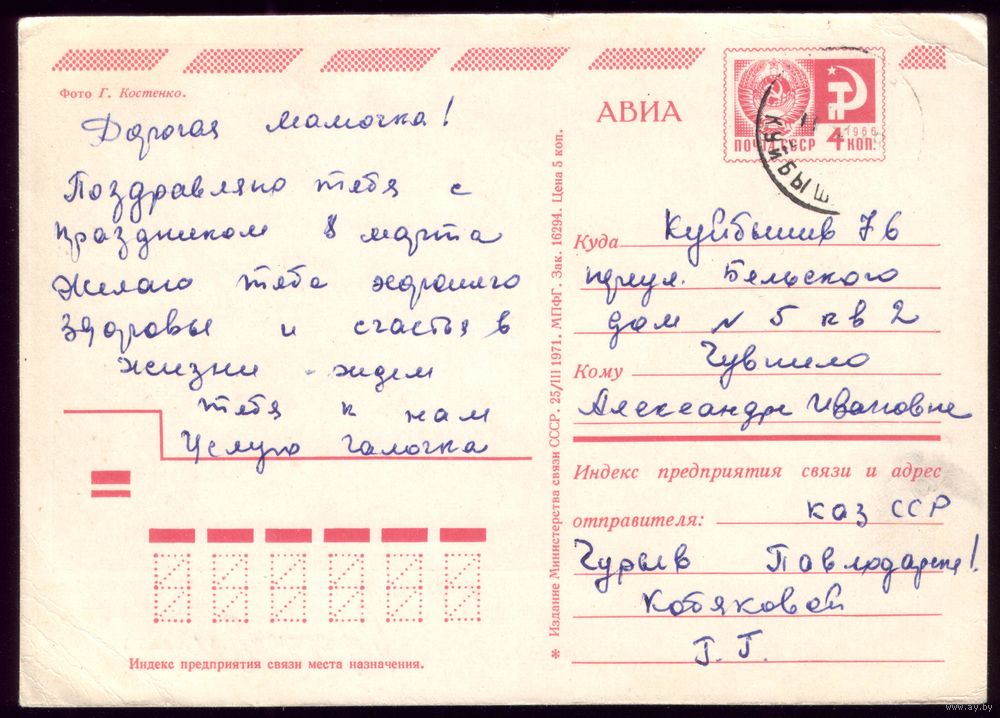 Фото Г. Костенко.
Дорогая мамочка!
Поздравляю тебя с
праздником 8 марта
желаю тебе хорошего
здоровье и счастья в
жизни ждем
тебя к нам
Целую Галочка
Индекс предприятия связи места назначения.
* Издание Министерства связи СССР. 25/III 1971. МПФГ. Зак. 16294. Цена 5 коп.
АВИА
ПОЧТА СССР 4 КОП.
1966
КУЙБЫШ
Куда Куйбышев 76
переул. Бельского
дом N 5 кв 2
Кому
Александре Ивановне
Индекс предприятия связи и адрес
отправителя: каз ССР
Гурьев
Кобяковой
Г. Г.
www.ay.by